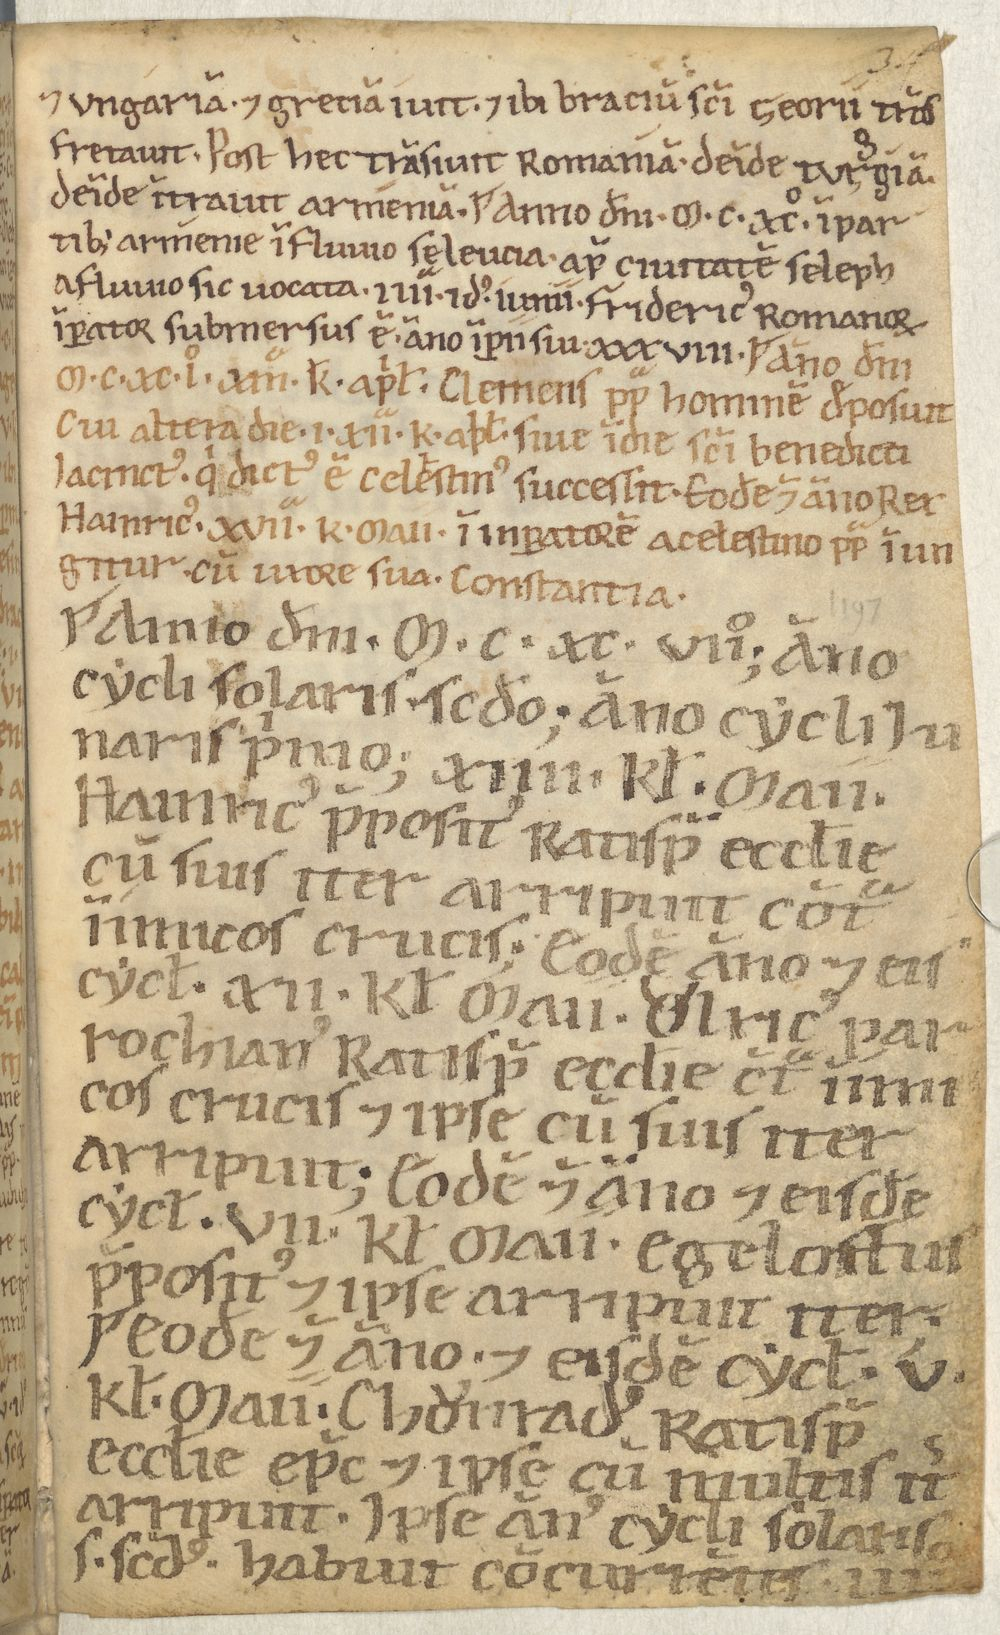 34
⁊ vngariā · ⁊ greciā iuit · ⁊ ibi braciū sc̄i Georii trās
fretauit · Post hec trāsiuit Romaniā · deīde turgiā ·
deīde ītrauit armeniā · Anno dn̄i · M · c · xc° · īpar
tib; armenie ī fluuio seleucia · ap̄ ciuitatē seleph
a fluuio sic uocata · iiii · id⁹ iunii · frideric⁹ Romanoꝝ
īꝑator submersus ē · āno īꝑii sui · xxxviii · Āno dn̄i
M · c · xc · i° · xiii · k̄ · apꝉ · Clemens pp̄ hominē d̄posuit
Cui altera die · i · xii · k · apꝉ · siue īdie sc̄i benedicti
Iacinct⁹ · q̇ dict⁹ ē celestin⁹ successit · Eodē ⁊ āno Rex
Hainric⁹ · xvii · k · Maii · ī inꝑatorē a celestino pp̄ īun
gitur · cū uxore sua · Constantia ·
1197
Anno dn̄i · M · c · xc · vii°; āno
cẏcli solaris · scd̄o; āno cẏcli lu
naris pͥmo; xiiii · kꝉ · Maii ·
Hainric⁹ p̄posit⁹ Ratisp̄ eccꝉie
cū suis iter arripuit cōt
īimicos crucis; Eodē āno ⁊ eis
cẏcꝉ · xii · kꝉ Maii · Olric⁹ par
rochian⁹ Ratisp̄ eccꝉie c̄t īimi
cos crucis ⁊ ipse cū suis iter
arripuit; Eodē ⁊ āno ⁊ eisdē
cẏcꝉ · vii · kꝉ Maii · Egelolfus
p̄posit⁹ ⁊ ipse arripuit iter ·
Eodē ⁊ āno · ⁊ eisdē cẏcꝉ · v ·
kꝉ · Maii · Chůnrad⁹ Ratisp̄
eccꝉie ep̄c ⁊ ipse cū multis it
arripuit · Ipse ān⁹ cẏcli solaris
s · scd̄⁹ · habuit cōcurrētes · iii